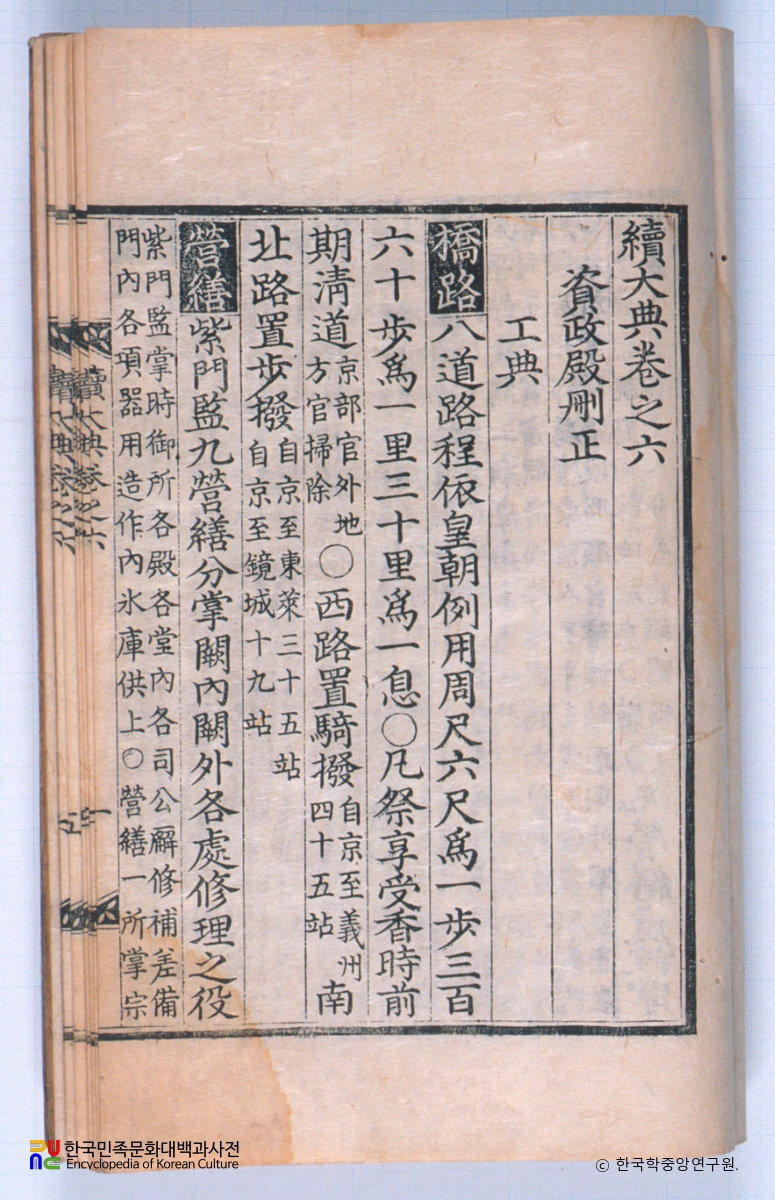 續大典卷之六
資政殿刪正
工典
橋路八道路程依皇朝例用周尺六尺爲一步三百
六十步爲一里三十里爲一息○凡祭享受香時前
期淸道京部官外地方官掃除○西路置騎撥自京至義州四十五站南
北路置步撥自京至東萊三十五站自京至鏡城十九站
營繕紫門監九營繕分掌闕內闕外各處修理之役
紫門監掌時御所各殿各堂內各司公廨修補差備
門內各項器用造作內氷庫供上○營繕一所掌宗
續大典卷之六
한국민족문화대백과사전
Encyclopedia of Korean Culture
© 한국학중앙연구원.